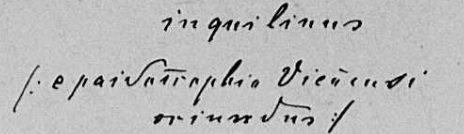 inquilinus
/: e paidotrophio Viennensi
oriundus :/